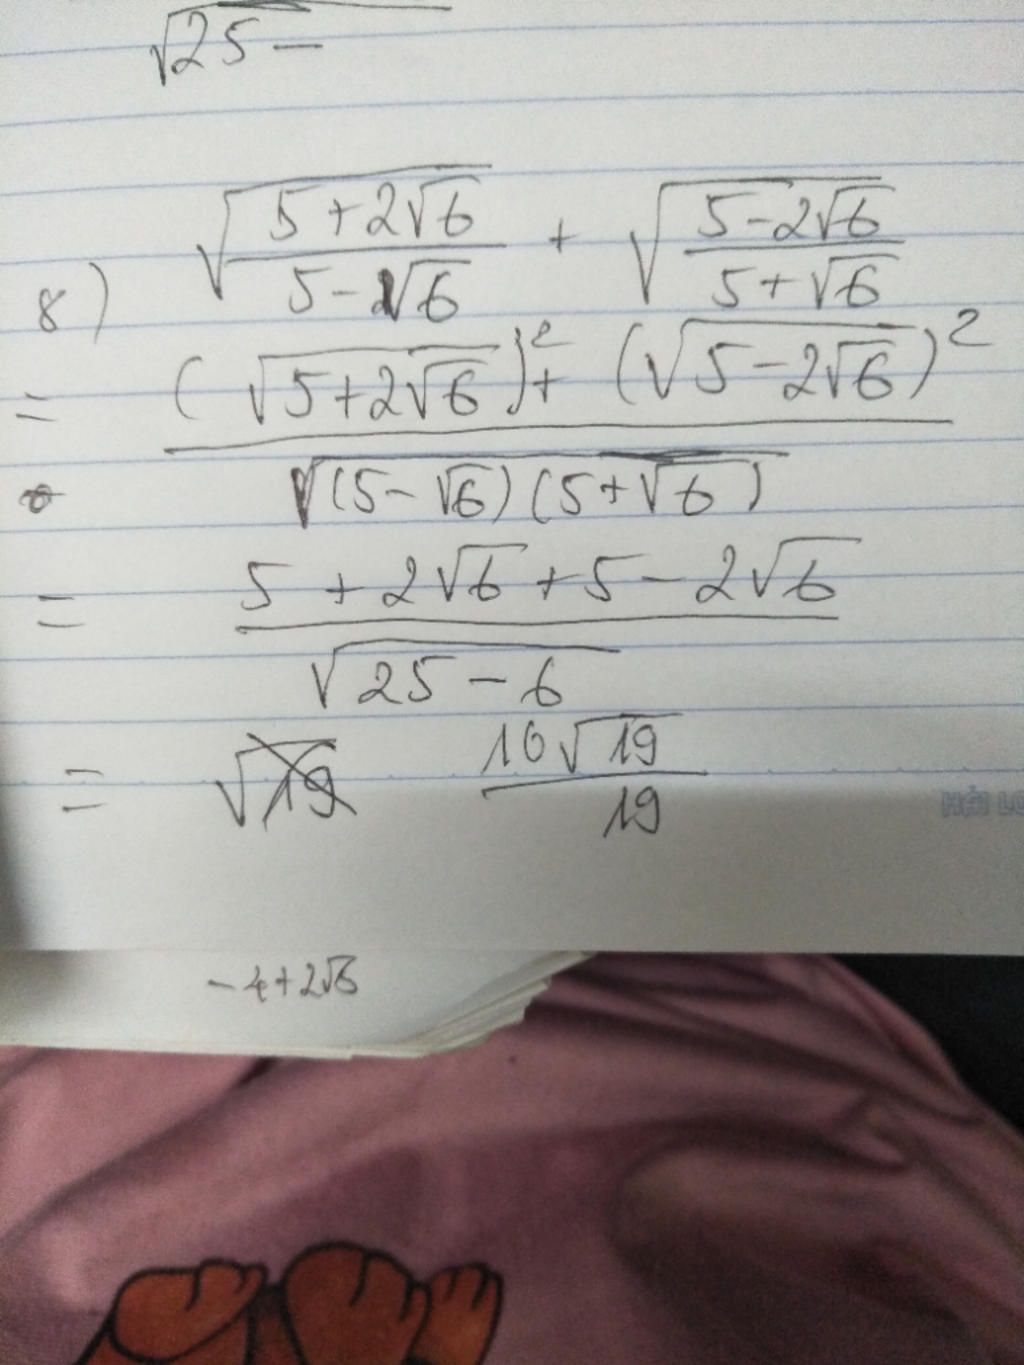 √25 −
8) √((5+2√6)/(5−√6)) + √((5−2√6)/(5+√6))
= ((√(5+2√6))² + (√(5−2√6))²)/√((5−√6)(5+√6))
= (5+2√6+5−2√6)/√(25−6)
= √19 10√19/19
−4+2√6